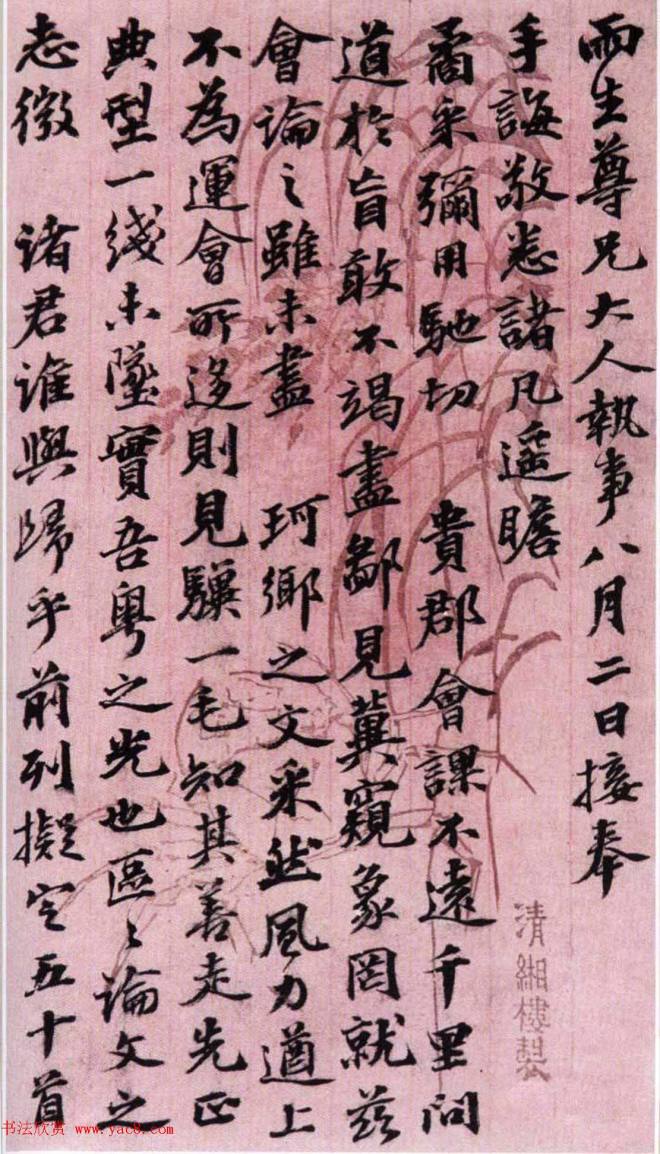 雨生尊兄大人執事八月二日接奉
手誨敬悉諸凡遥瞻
矞采彌用馳切　貴郡會課不遠千里問
道於盲敢不竭盡鄙見冀窺象罔就兹
會論之雖未盡　珂鄉之文采然風力遒上
不為運會所迻則見驥一毛知其善走先正
典型一綫未墜實吾粤之光也區〻論文之
志微　诸君誰與歸乎前列擬定五十首
清緗樓製
书法欣赏 www.yac8.com